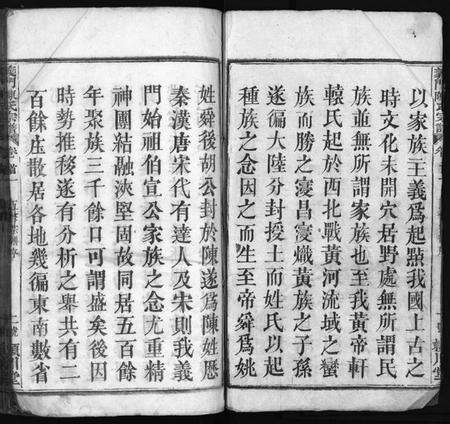 以家族主義爲起點我國上古之
時文化未開穴居野處無所謂民
族並無所謂家族也至我黃帝軒
轅氏起於西北戰黃河流域之蠻
族而勝之寖昌寖熾黃族之子孫
徧佈大陸分封授土而姓氏以起
種族之念因之而生至帝舜爲姚
姓舜後胡公封於陳遂爲陳姓歷
秦漢唐宋代有達人及宋則我義
門始祖伯宣公家族之念尤重精
神團結融浹堅固故同居五百餘
年聚族三千餘口可謂盛矣後因
時勢推移遂有分析之舉共有二
百餘庄散居各地幾徧東南數省